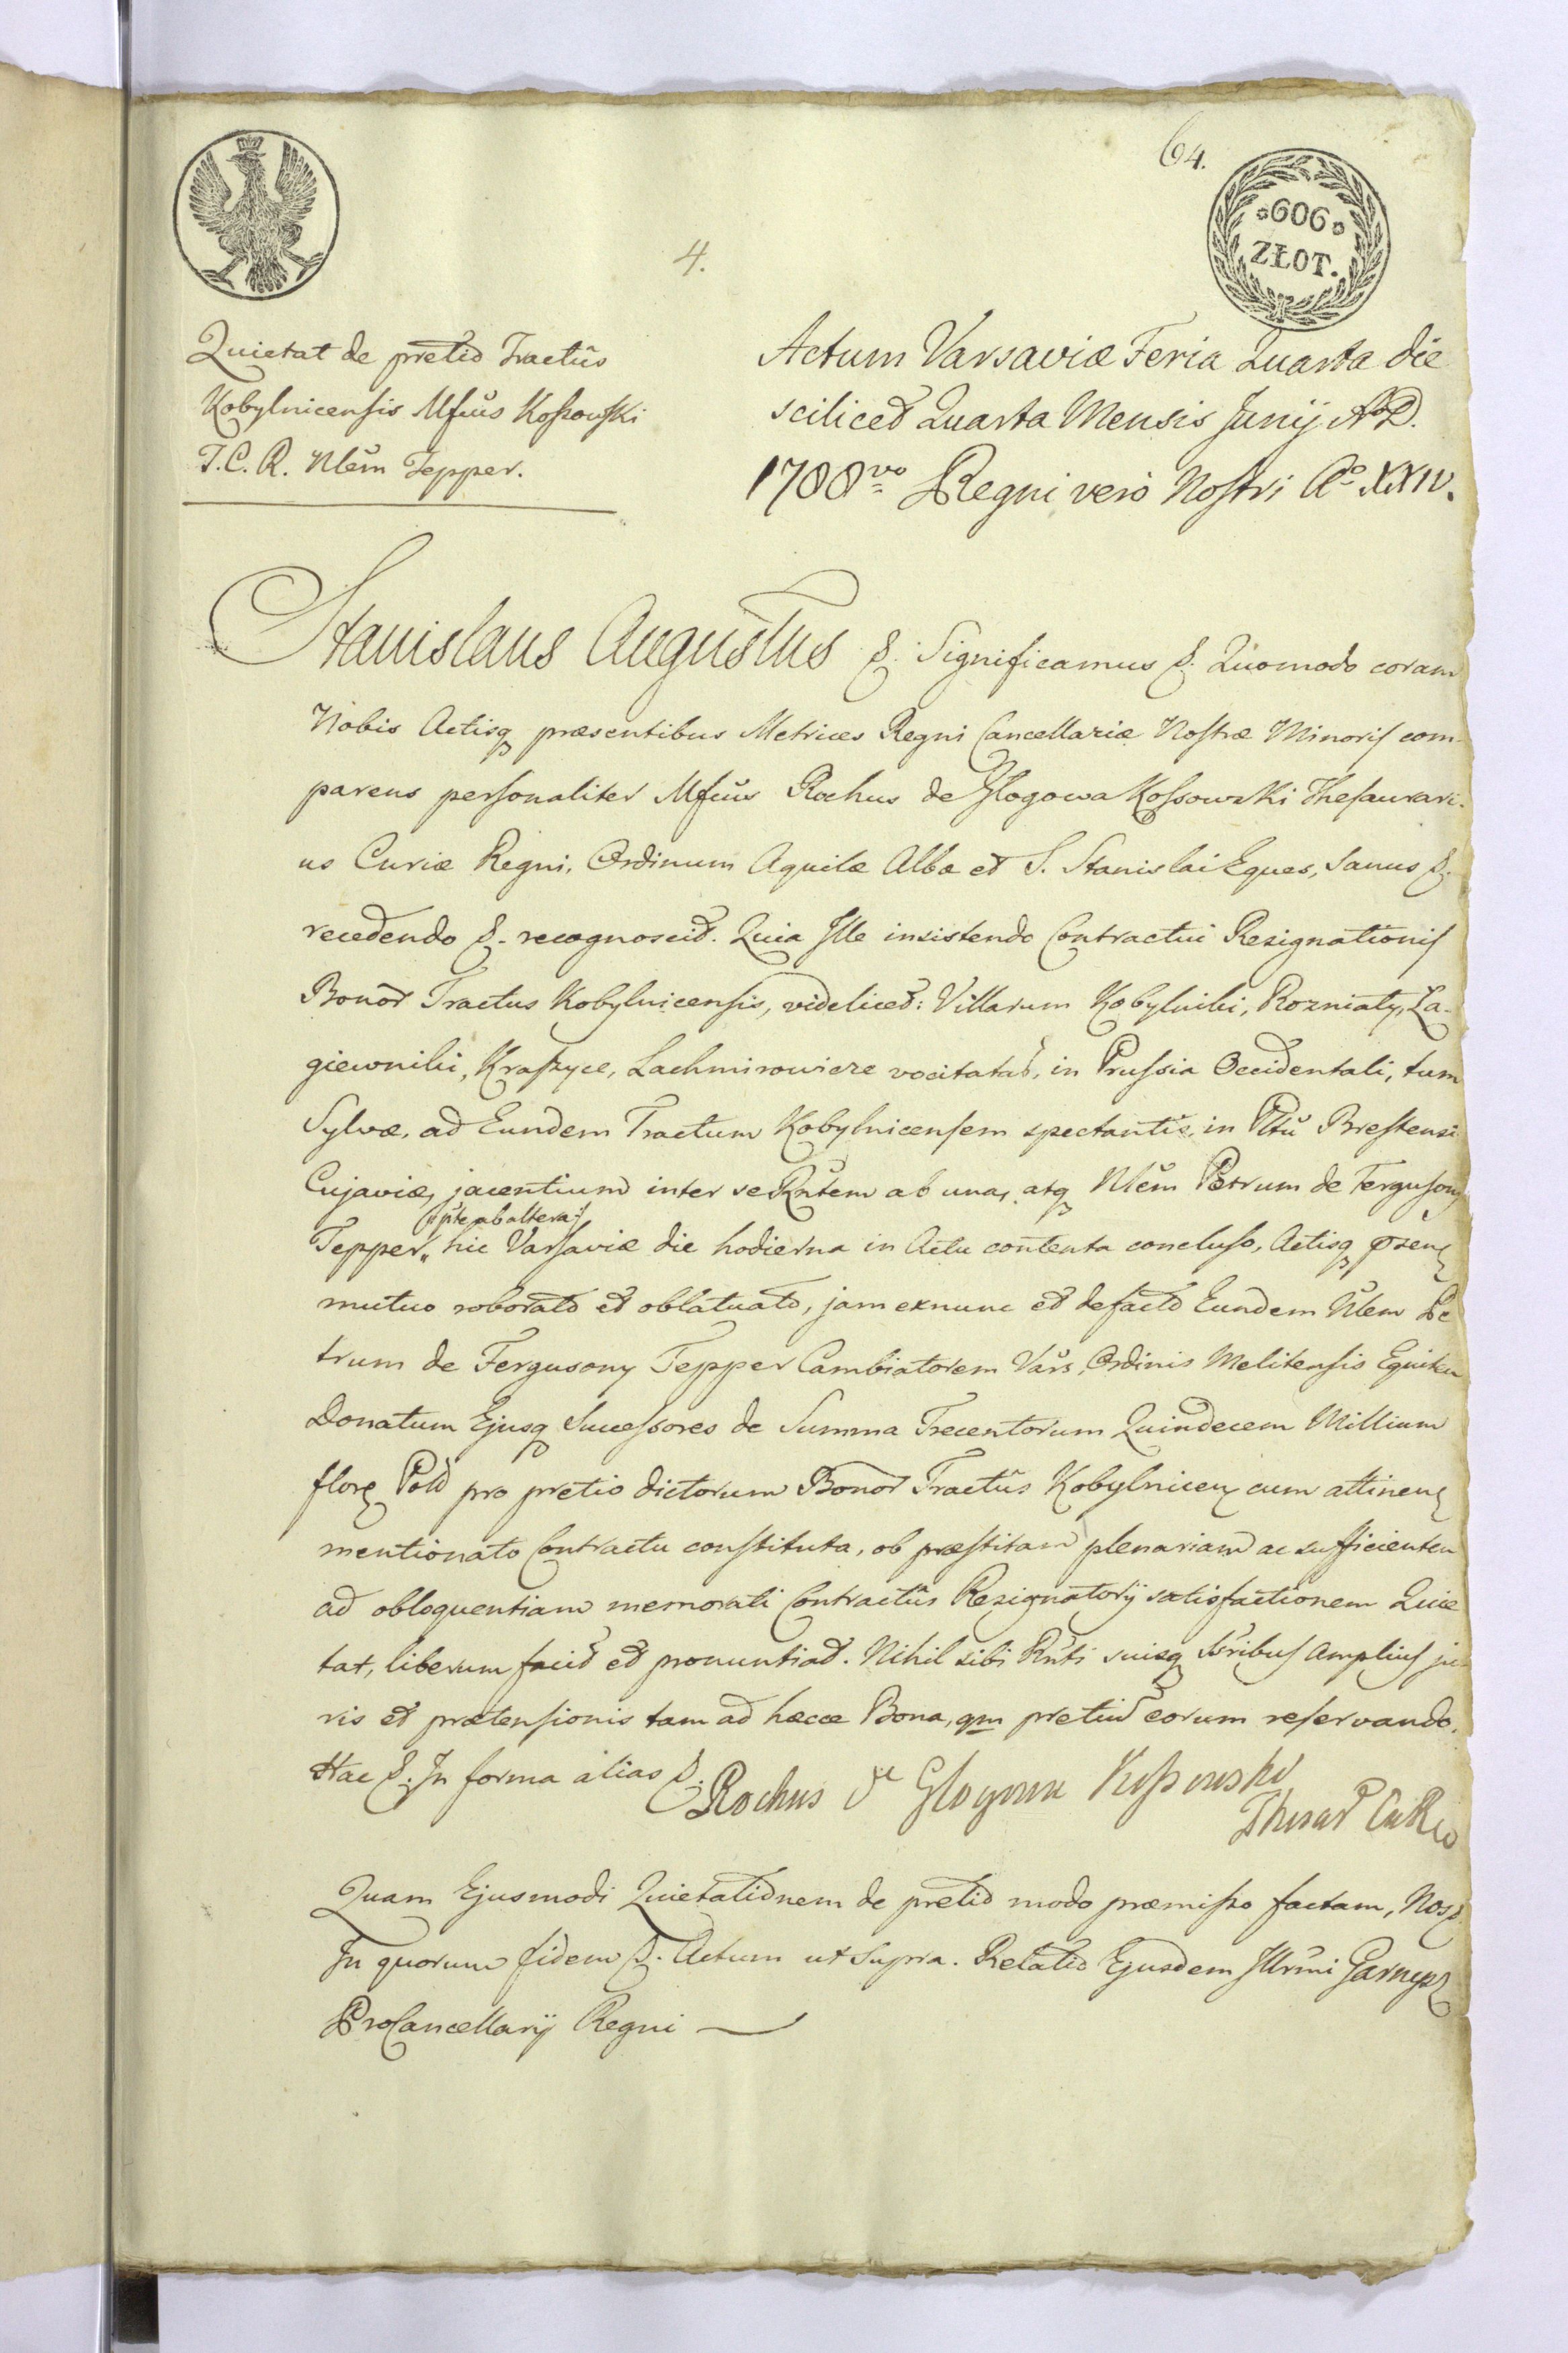 64.
606
ZŁOT.
4.
Quietat de pretio Tractûs
Kobylnicensis Mfcus Koſsowſki
T.C.R. Nlem Tepper.
Actum Varsaviæ Feria Quarta die
scilicet Quarta Mensis Junij AoD.
1788vo Regni vero Noſtri Ao XXIV.
Stanislaus Augustus &. Significamus &. Quomodo coram
Nobis Actisq præsentibus Metrices Regni Cancellariæ Noſtræ Minoriſ com-
parens perſonaliter Mfcus Rochus de Glogowa Koſsowski Theſaurari-
us Curiæ Regni, Ordinum Aquilæ Albæ et S. Stanislai Eques, sanus &.
recedendo &. recognoscit. Quia Ille insistendo Contractui Resignationiſ
Bonor Tractus Kobylnicenſis, videlicet: Villarum Kobylniki, Rozniaty, La-
giewniki, Kraſzyce, Lachmirowicze vocitatar, in Pruſsia Occidentali, tum
Sylvæ, ad Eundem Tractum Kobylnicenſem spectantis, in Pltu Breſtensi
Cujaviæ, jacentium inter se Rntem ab una, atq Nlem Petrum de Ferguſony
pte ab altera
Tepper„ hic Varſaviæ die hodierna in Actu contenta concluſo, Actisq præsen
mutuo roborato et oblatuato, jam exnunc et defacto Eundem Nlem Pe
trum de Fergusony Tepper Cambiatorem Vars, Ordinis Melitenſis Equitem
Donatum Ejusq Succeſsores de Summa Trecentorum Quindecem Millium
flor Pol pro pretio dictorum Bonor Tractûs Kobylnicen cum attinen
mentionato Contractu conſtituta, ob præſtitam plenariam ac sufficientem
ad obloquentiam memorati Contractûs Resignatorij satisfactionem Quie
tat, liberum facit et pronuntiat. Nihil sibi Rnti suisq Ssribuſ ampliuſ ju
ris et prætenſionis tam ad hæcce Bona, qm pretiu eorum reſervando.
Hac &. In forma alias &.
Rochus de Glogowa Koſsowski
Thesar Cu Re
Quam Ejusmodi Quietationem de pretio modo præmiſso factam, Nos &
In quorum fidem &. Actum ut supra. Relatio Ejusdem Illrmi Garnysz
ProCancellarij Regni